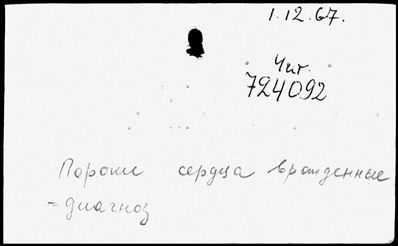 1.12.67.
Чит.
724092
Пороки сердца врожденные
- диагноз